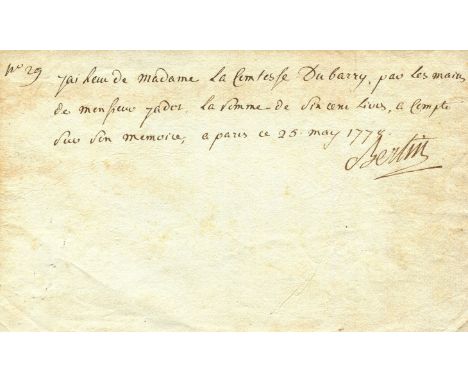 No 29
jai heue de madame la Comtesse Dubarry, par les mains
de monsieur jadot. la somme de sin cent livres, a compte
sur son memoire, a paris ce 25 may 1779.
Bertin